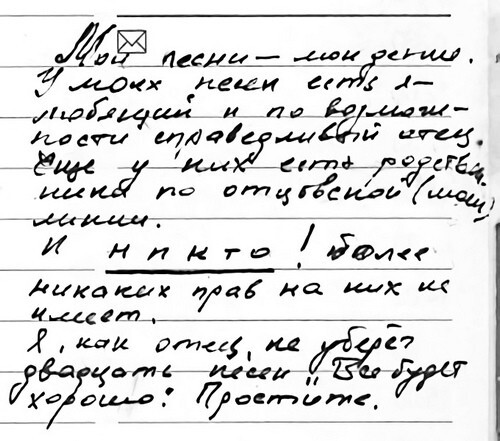 Мои песни — мои дети.
У моих песен есть я —
любящий и по возмож-
ности справедливый отец.
Еще у них есть родствен-
ники по отцовской (моей)
линии.
И никто! более
никаких прав на них не
имеет.
Я, как отец, не уберёг
двадцать песен Все будет
хорошо! Простите.